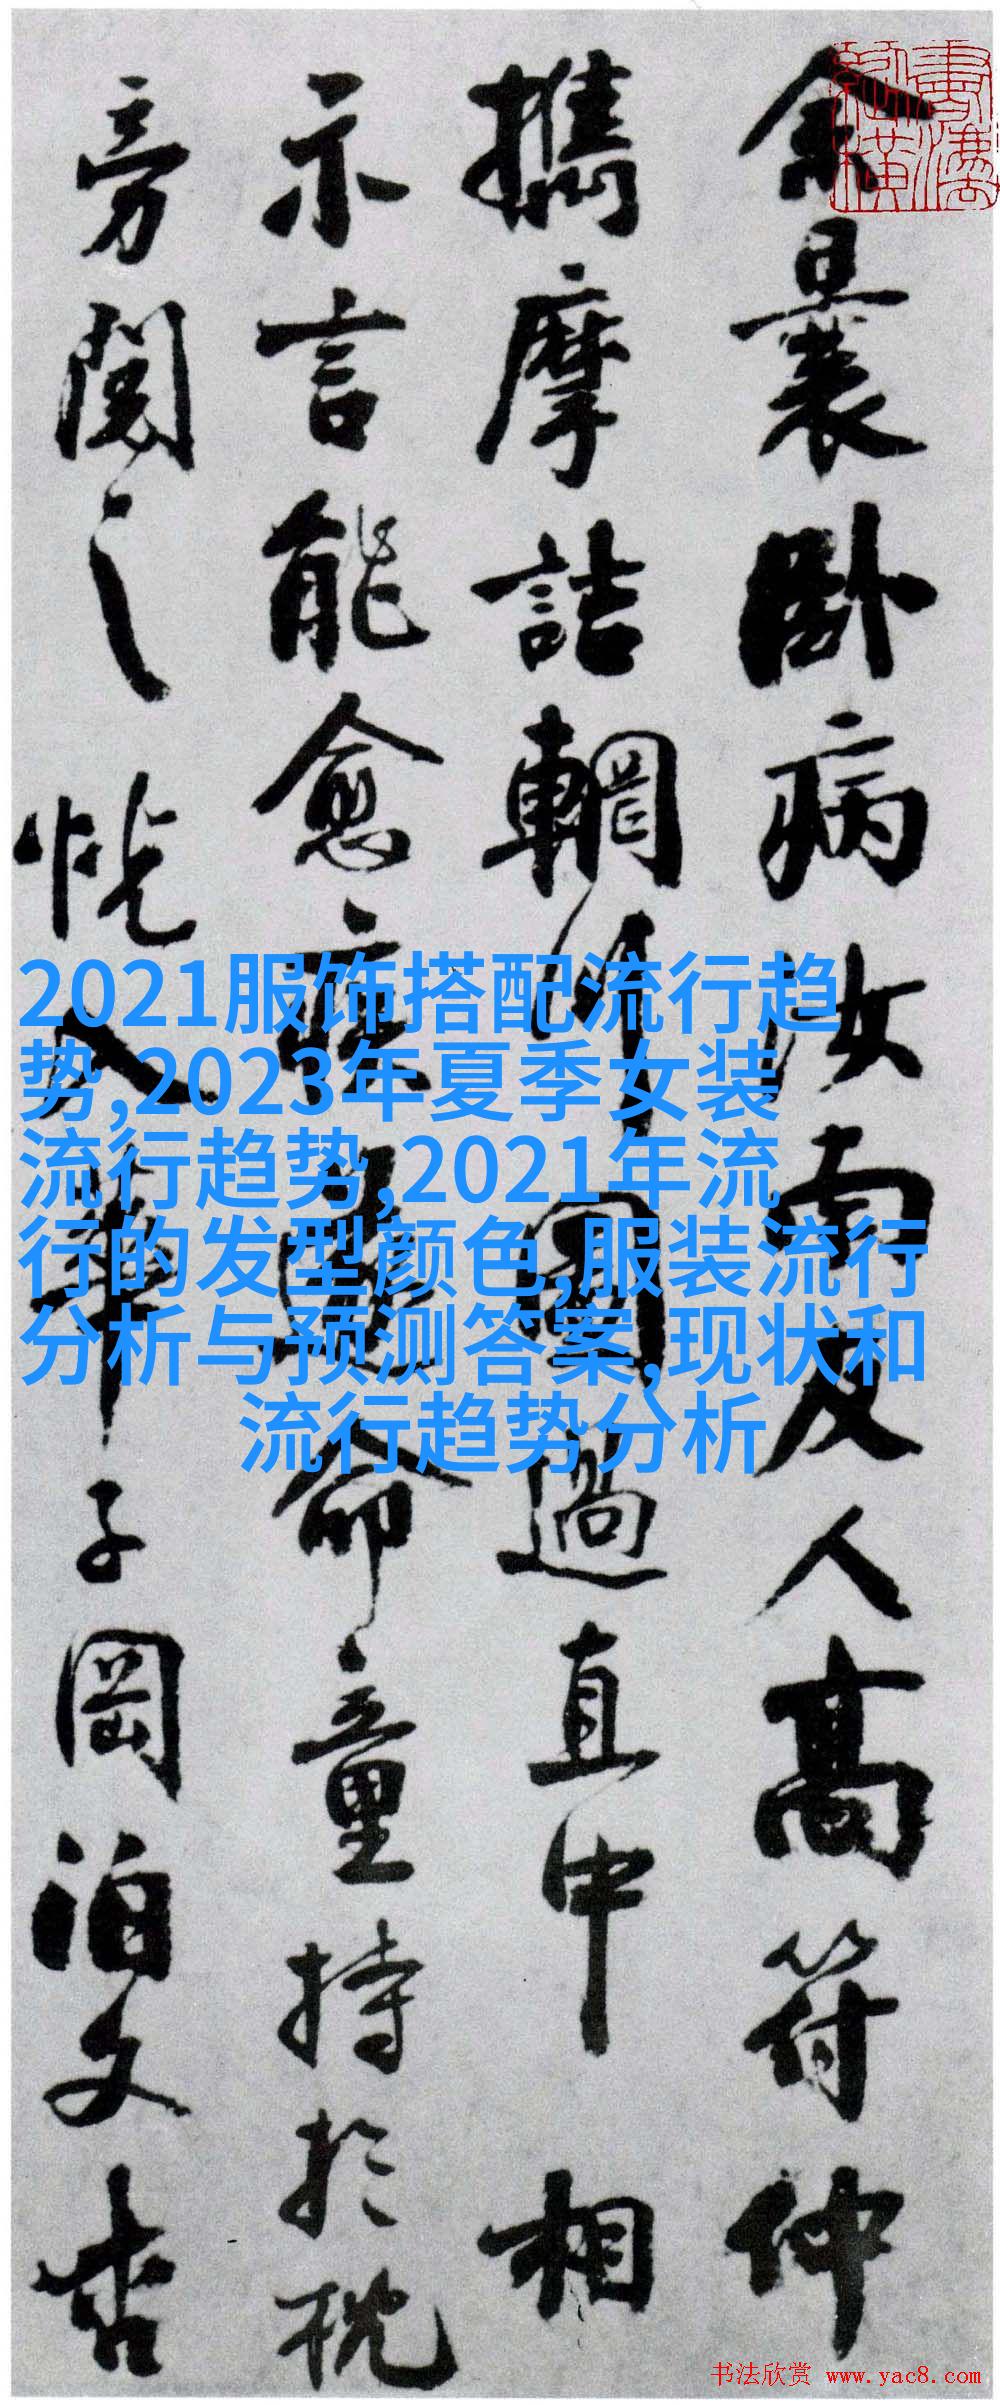 余曩卧病汝南友人高符仲
攜摩詰輞川圖過直中相
示言能愈疾遂命童持於枕
旁閱之恍入華子岡泊文杏
2021服饰搭配流行趋
势,2023年夏季女装
流行趋势,2021年流
行的发型颜色,服装流行
分析与预测答案,现状和
流行趋势分析
书法欣赏 www.yac8.com